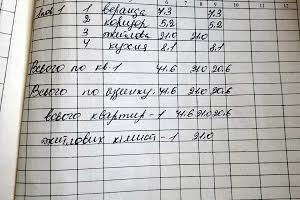 1 1 веранда 7.3 7.3
2 коридор 5.2 5.2
3 житлова 21.0 21.0
4 кухня 8.1 8.1
Всього по кв. 1 41.6 21.0 20.6
Всього по будинку: 41.6 21.0 20.6
всього квартир - 1 41.6 21.0 20.6
житлових кімнат - 1 21.0